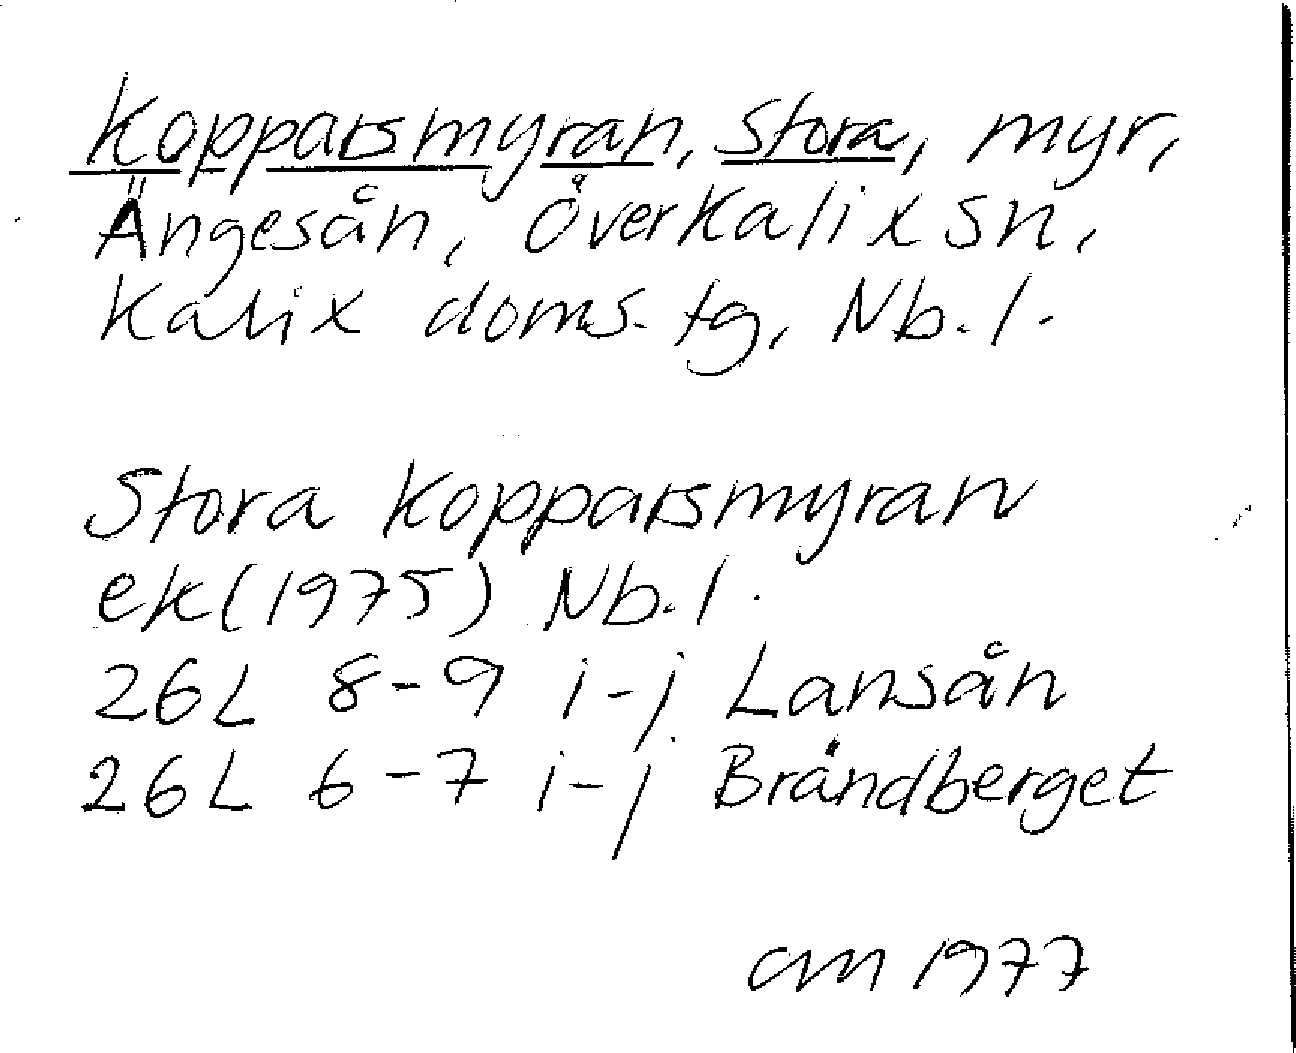 Kopparsmyran, Stora, myr,
Ängesån, Överkalix sn,
Kalix doms. tg, Nb. l.
Stora Kopparsmyran
ek (1975) Nb. l.
26L 8-9 i-j Lansån
26L 6-7 i-j Brändberget
cm 1977